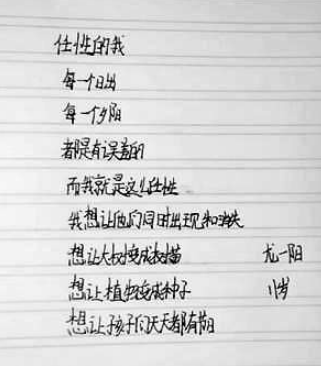 任性的我
每一个日出
每一个夕阳
都是有误差的
而我就是这么任性
我想让他们同时出现和消失
想让大树变成树苗
尤一阳
想让植物变成种子
11岁
想让孩子们天天都有假日